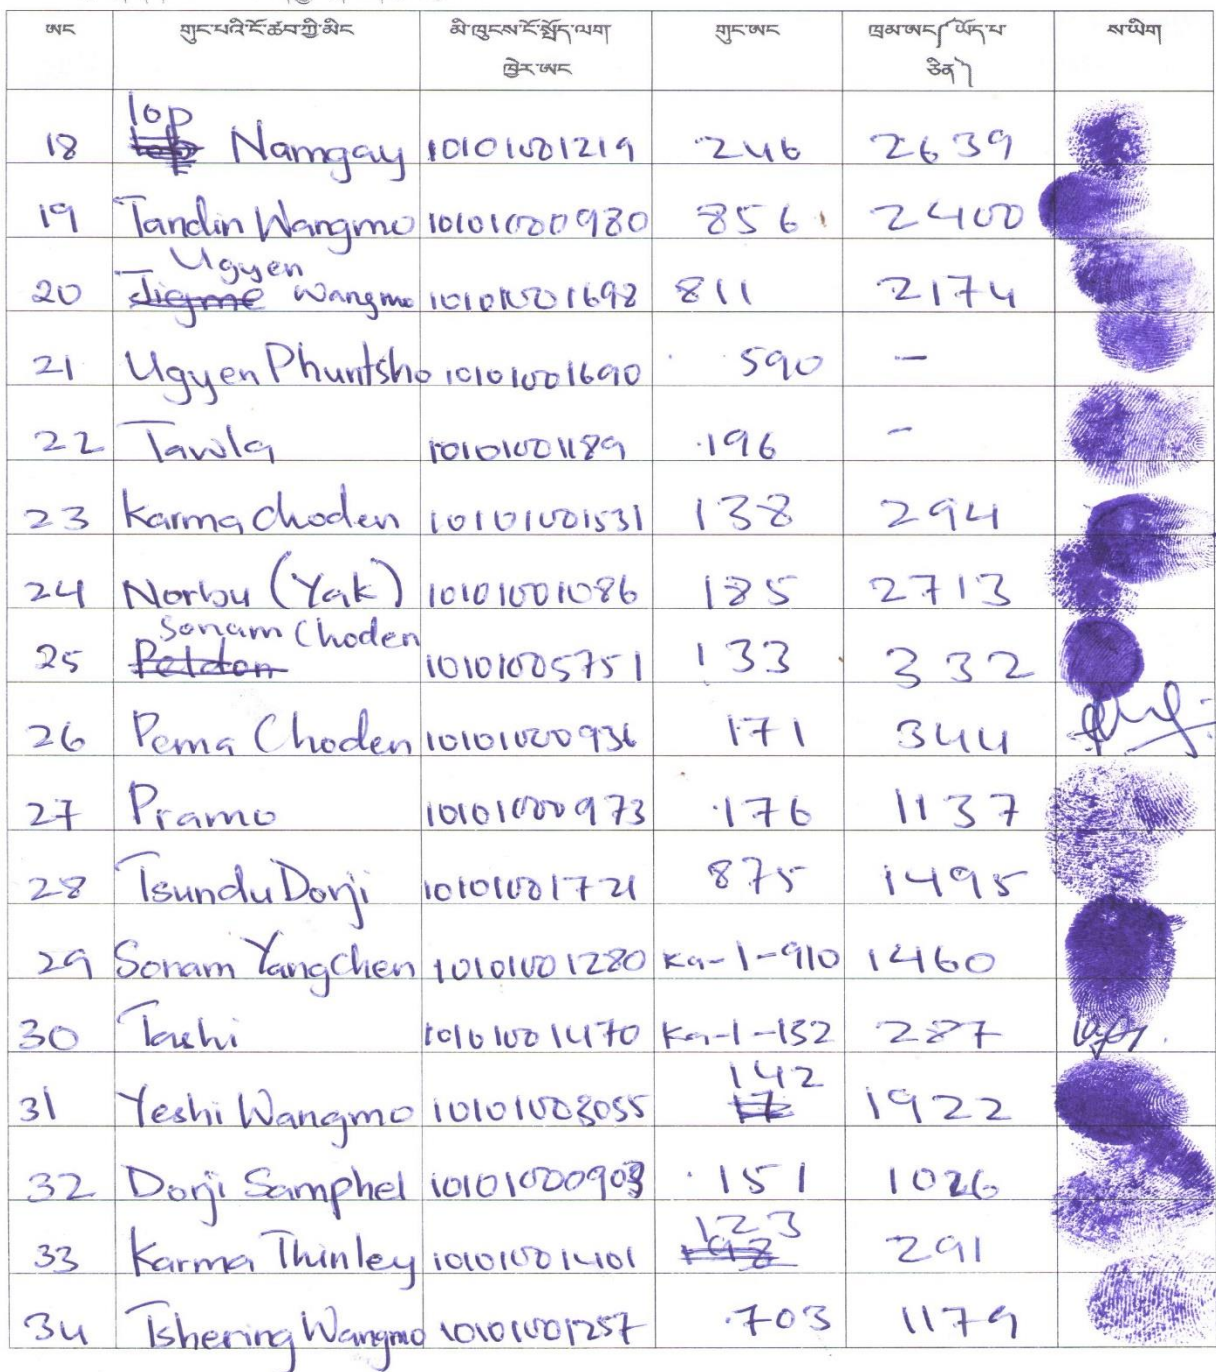 ཨང གུང་པའི་ངོ་ཚབ་ཀྱི་མིང མི་ཁུངས་ངོ་སྤྲོད་ལག་ཁྱེར་ཨང གུང་ཨང ཁྲམ་ཨང༌(ཡོད་པ་ཅིན) ས་ཡིག
18 lop Namgay 10101001219 246 2639
19 Tandin Wangmo 10101000980 856 2400
20 Ugyen Jigme Wangmo 10101001698 811 2174
21 Ugyen Phuntsho 10101001690 590 -
22 Tawla 10101001189 196 -
23 Karma choden 10101001531 138 294
24 Norbu (Yak) 10101001086 185 2713
25 Sonam Choden Peldon 10101005751 133 332
26 Pema Choden 10101000936 171 344
27 Pramo 10101000973 176 1137
28 Tsundu Dorji 10101001721 875 1495
29 Sonam Yangchen 10101001280 Ka-1-910 1460
30 Tashi 10101001470 Ka-1-132 287
31 Yeshi Wangmo 10101003055 142 17 1922
32 Dorji Samphel 10101000903 151 1026
33 Karma Thinley 10101001401 123 198 291
34 Tshering Wangmo 10101001257 703 1179